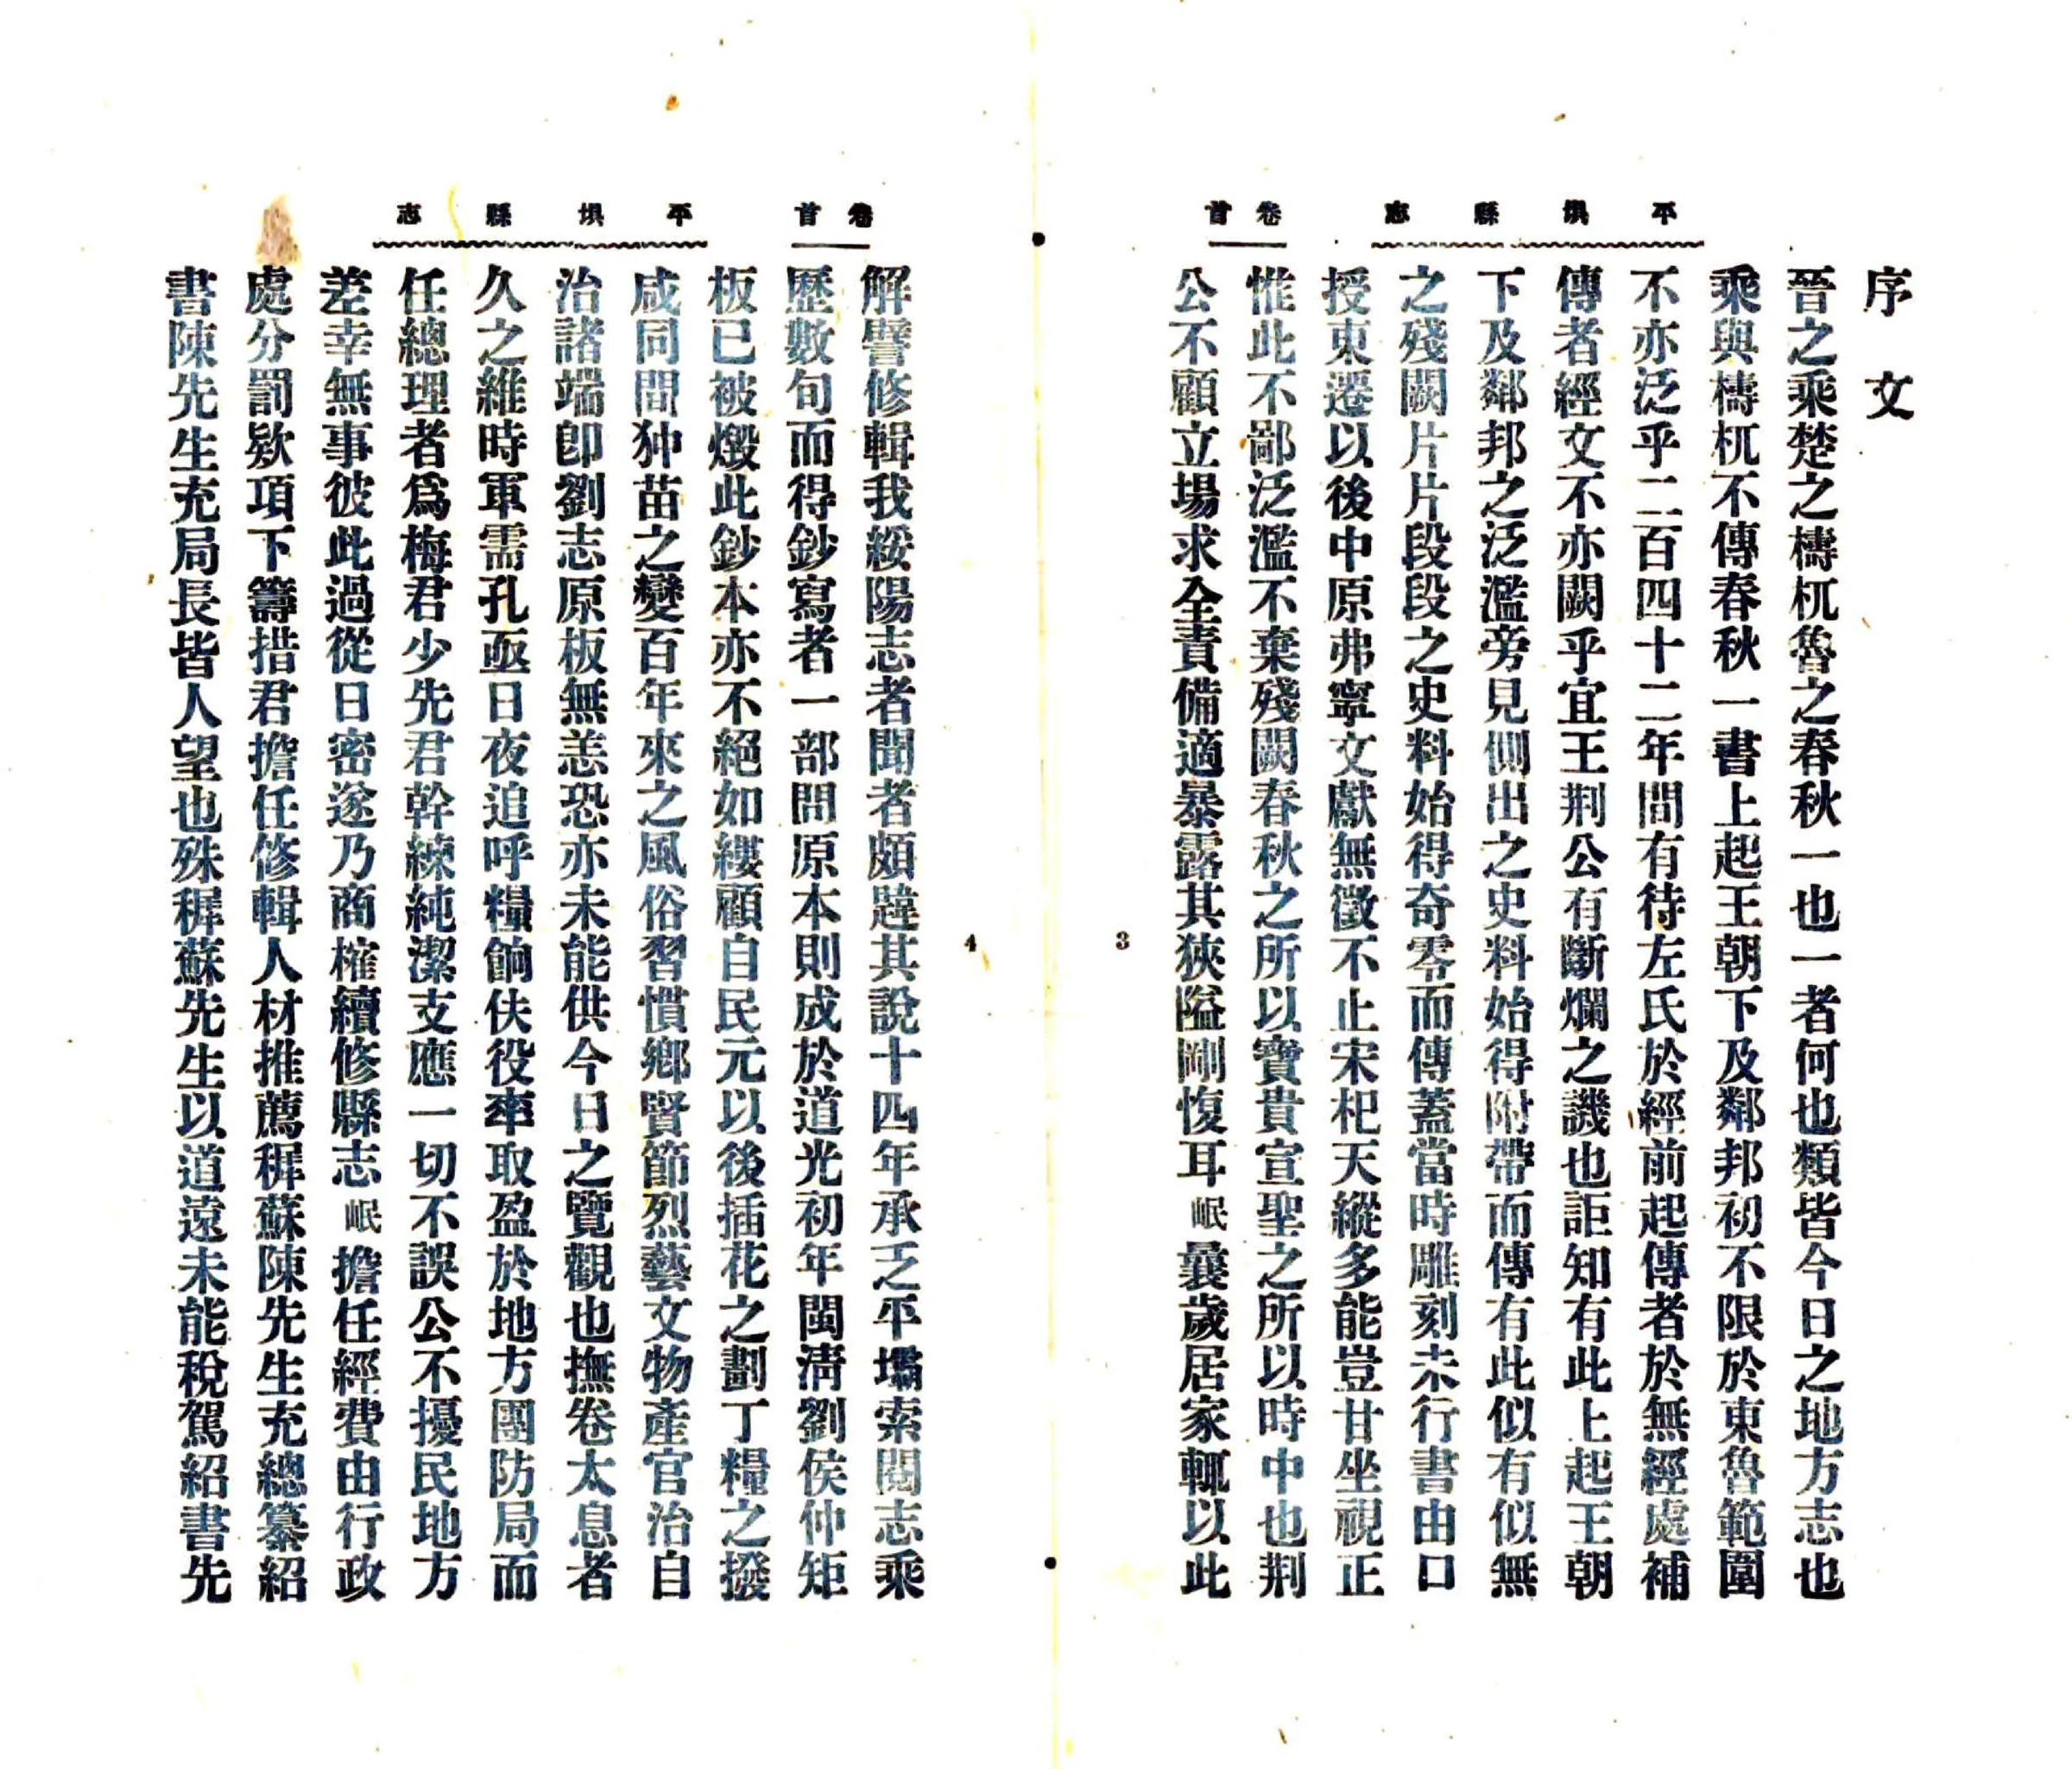 平垻縣志
卷首
序文
晉之乘楚之檮杌魯之春秋一也一者何也類皆今日之地方志也
乘與檮杌不傳春秋一書上起王朝下及鄰邦初不限於東魯範圍
不亦泛乎二百四十二年間有待左氏於經前起傳者於無經處補
傳者經文不亦闕乎宜王荆公有斷爛之譏也詎知有此上起王朝
下及鄰邦之泛濫旁見側出之史料始得附帶而傳有此似有似無
之殘闕片片段段之史料始得奇零而傳蓋當時雕刻未行書由口
授東遷以後中原弗寧文獻無徵不止宋杞天縱多能豈甘坐視正
惟此不鄙泛濫不棄殘闕春秋之所以寶貴宣聖之所以時中也荆
公不顧立場求全責備適暴露其狹隘剛愎耳岷曩歲居家輒以此
3
平垻縣志
卷首
解譬修輯我綏陽志者聞者頗韙其說十四年承乏平壩索閱志乘
歷數旬而得鈔寫者一部問原本則成於道光初年閩淸劉侯仲矩
板已被燬此鈔本亦不絕如縷顧自民元以後插花之劃丁糧之撥
咸同間狆苗之變百年來之風俗習慣鄉賢節烈藝文物產官治自
治諸端卽劉志原板無恙恐亦未能供今日之覽觀也撫卷太息者
久之維時軍需孔亟日夜迫呼糧餉伕役率取盈於地方團防局而
任總理者爲梅君少先君幹練純潔支應一切不誤公不擾民地方
差幸無事彼此過從日密遂乃商榷續修縣志岷擔任經費由行政
處分罰欵項下籌措君擔任修輯人材推薦穉蘇陳先生充總纂紹
書陳先生充局長皆人望也殊穉蘇先生以道遠未能稅駕紹書先
4